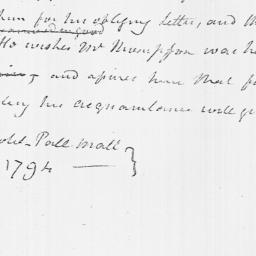 him for his obliging letter, and th
He wishes Mr Thompson was he
and assures him that f
his acquaintance will g
Pall Mall
1794